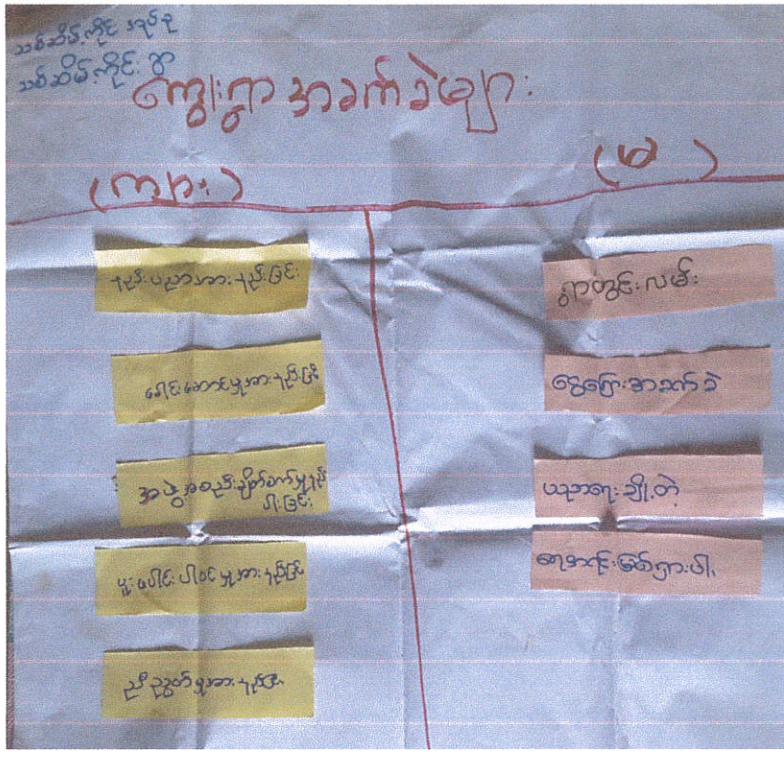 သစ်ဆိမ့်ကိုင်း
သစ်ဆိမ့်ကိုင်း ရွာ
ကျေးရွာအခက်ခဲများ
(ကျား)
(မ)
နည်းပညာအားနည်းခြင်း
ခေါင်းဆောင်မှုအားနည်းခြင်း
အဖွဲ့အစည်းချိတ်ဆက်မှုနည်း
ပါးခြင်း
ပူးပေါင်းပါဝင်မှုအားနည်းခြင်း
ညီညွတ်မှုအားနည်းခြင်း
ရွာတွင်းလမ်း
ငွေကြေးအခက်ခဲ
ချို့တဲ့
ရေရှားပါး